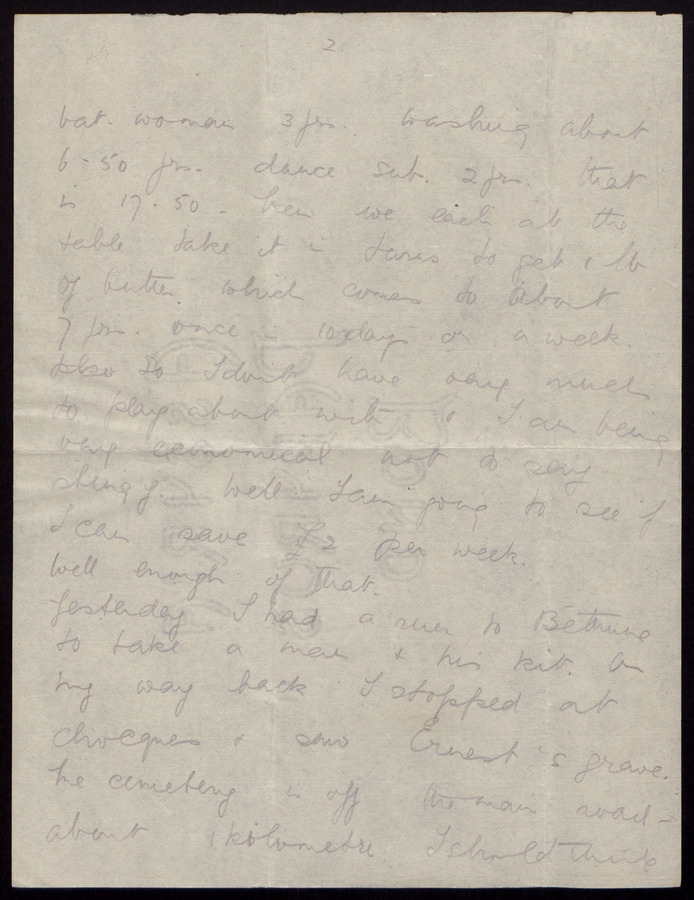 2.
bat. woman 3 frs. washing about
6-50 frs. dance sub. 2 frs. that
is 17.50 - then we each at the
table take it in turns to get 1 lb
of butter which comes to about
7 frs. once in 10 days or a week.
also so I dont have very much
to play about with & I am being
very economical not to say
stingy. Well I am going to see if
I can save £2 per week.
Well enough of that.
Yesterday I had a run to Béthune
to take a man & his kit. On
my way back I stopped at
Chocques & saw Ernest's grave.
The cemetery is off the main road -
about 1 kilometre I should think